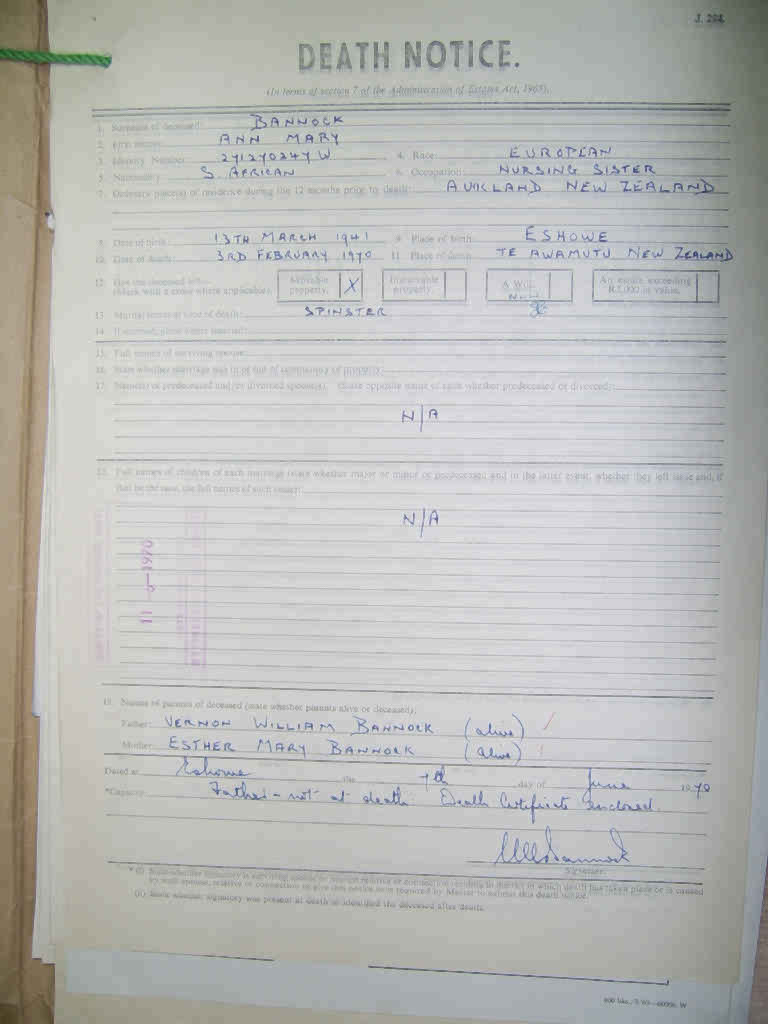 J. 294
DEATH NOTICE.
(In terms of section 7 of the Administration of Estates Act, 1965).
1. Surname of deceased: BANNOCK
2. First names: ANN MARY
3. Identity Number: 271270247 W 4. Race: EUROPEAN
5. Nationality: S. AFRICAN 6. Occupation: NURSING SISTER
7. Ordinary place(s) of residence during the 12 months prior to death: AUKLAND NEW ZEALAND
8. Date of birth: 13TH MARCH 1941 9. Place of birth: ESHOWE
10. Date of death: 3RD FEBRUARY 1970 11. Place of death: TE AWAMUTU NEW ZEALAND
12. Has the deceased left: Movable property. X Immovable property. A Will An estate exceeding
(Mark with a cross where applicable).
13. Marital status at time of death: SPINSTER
14. If married, place where married:
15. Full names of surviving spouse:
16. State whether marriage was in or out of community of property:
17. Name(s) of predeceased and/or divorced spouse(s). (State opposite name of each whether predeceased or divorced):
N/A
18. Full names of children of each marriage (state whether major or minor or predeceased and in the latter event, whether they left issue and, if
that be the case, the full names of such issue):
N/A
11-6-1970
19. Names of parents of deceased (state whether parents alive or deceased):
Father: VERNON WILLIAM BANNOCK (alive)
Mother: ESTHER MARY BANNOCK (alive)
Dated at Eshowe the 7th day of June 1970
*Capacity: Father - not at death. Death Certificate enclosed.
Signature.
(ii) State whether signatory was present at death or identified the deceased after death.